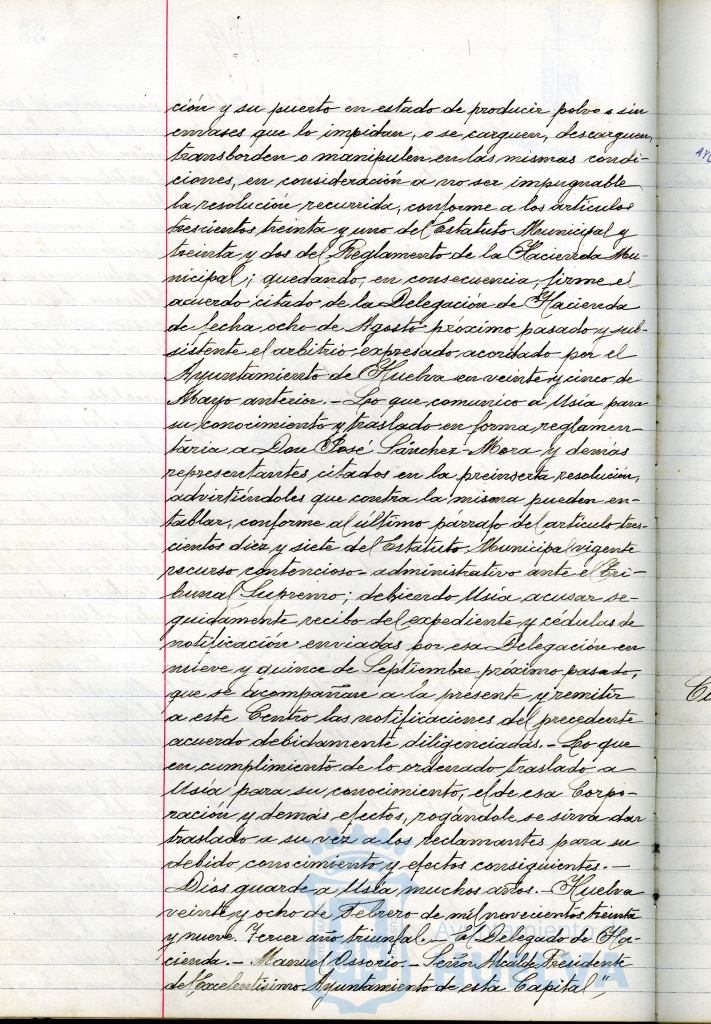 ción y su puerto en estado de producir polvo o sin
envases que lo impidan, o se carguen, descarguen,
transborden o manipulen en las mismas condi-
ciones, en consideración a no ser impugnable
la resolución recurrida, conforme a los artículos
trescientos treinta y uno del Estatuto Municipal y
treinta y dos del Reglamento de la Hacienda Mu-
nicipal; quedando, en consecuencia, firme el
acuerdo citado de la Delegación de Hacienda
de fecha ocho de Agosto próximo pasado y sub-
sistente el arbitrio expresado acordado por el
Ayuntamiento de Huelva en veinte y cinco de
Mayo anterior.- Lo que comunico a Usía para
su conocimiento y traslado en forma reglamen-
taria a Don José Sánchez-Mora y demás
representantes citados en la preinserta resolución,
advirtiéndoles que contra la misma pueden en-
tablar, conforme al último párrafo del artículo tres-
cientos diez y siete del Estatuto Municipal vigente
recurso contencioso-administrativo ante el Tri-
bunal Supremo; debiendo Usía acusar se-
guidamente recibo del expediente y cédulas de
notificación enviadas por esa Delegación en
nueve y quince de Septiembre próximo pasado,
que se acompañan a la presente y remitir
a este Centro las notificaciones del precedente
acuerdo debidamente diligenciadas.- Lo que
en cumplimiento de lo ordenado traslado a
Usía para su conocimiento, el de esa Corpo-
ración y demás efectos, rogándole se sirva dar
traslado a su vez a los reclamantes para su
debido conocimiento y efectos consiguientes.-
Dios guarde a Usía muchos años.- Huelva
veinte y ocho de Febrero de mil novecientos treinta
y nueve. Tercer año triunfal.- El Delegado de Ha-
cienda.- Manuel Ossorio.- Señor Alcalde Presidente
del Excelentísimo Ayuntamiento de esta Capital",